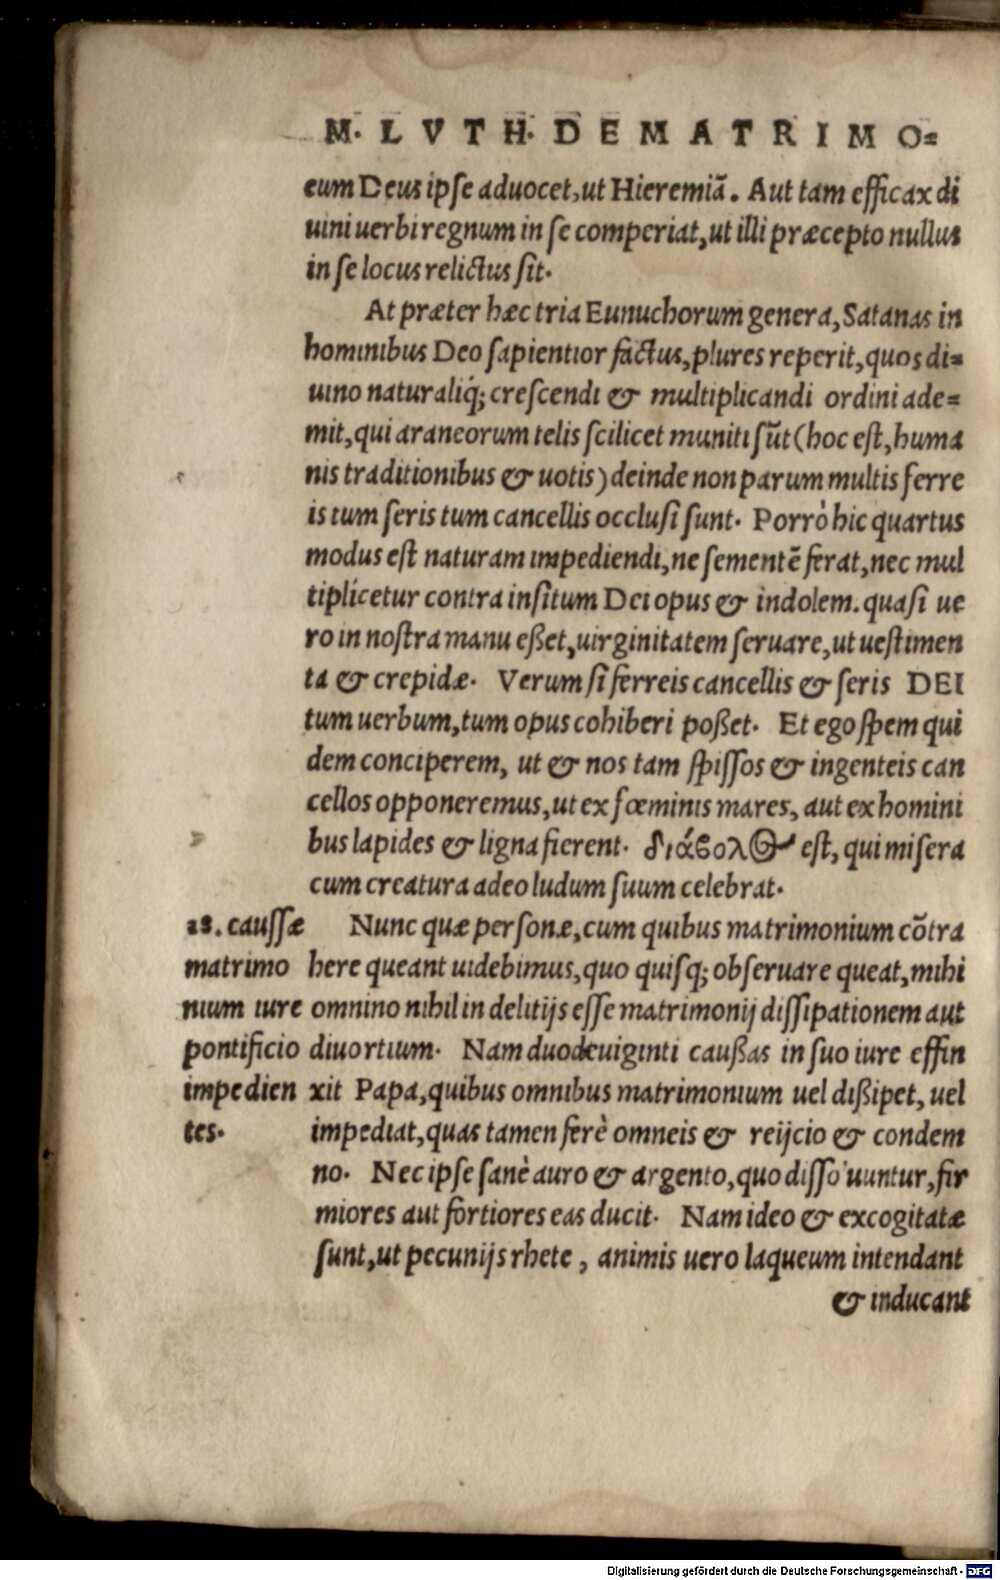 M. LVTH. DE MATRIMO⸗
eum Deus ipſe aduocet, ut Hieremiā. Aut tam efficax di
uini uerbi regnum in ſe comperiat, ut illi præcepto nullus
in ſe locus relictus ſit.
At præter hæc tria Eunuchorum genera, Satanas in
hominibus Deo ſapientior factus, plures reperit, quos di⸗
uino naturaliq́; creſcendi & multiplicandi ordini ade⸗
mit, qui araneorum telis ſcilicet muniti ſūt (hoc eſt, huma
nis traditionibus & uotis) deinde non parum multis ferre
is tum ſeris tum cancellis occluſi ſunt. Porrò hic quartus
modus eſt naturam impediendi, ne ſementē ferat, nec mul
tiplicetur contra inſitum Dei opus & indolem. quaſi ue
ro in noſtra manu eßet, uirginitatem ſeruare, ut ueſtimen
ta & crepidæ. Verum ſi ferreis cancellis & ſeris DEI
tum uerbum, tum opus cohiberi poßet. Et ego ſpem qui
dem conciperem, ut & nos tam ſpiſſos & ingenteis can
cellos opponeremus, ut ex fœminis mares, aut ex homini
bus lapides & ligna fierent. διάβολος eſt, qui miſera
cum creatura adeo ludum ſuum celebrat.
18. cauſſæ
matrimo
nium iure
pontificio
impedien
tes.
Nunc quæ perſonæ, cum quibus matrimonium cōtra
here queant uidebimus, quo quiſq; obſeruare queat, mihi
omnino nihil in delitijs eſſe matrimonij diſſipationem aut
diuortium. Nam duodeuiginti caußas in ſuo iure effin
xit Papa, quibus omnibus matrimonium uel dißipet, uel
impediat, quas tamen ferè omneis & reijcio & condem
no. Nec ipſe ſanè auro & argento, quo diſſoluuntur, fir
miores aut fortiores eas ducit. Nam ideo & excogitatæ
ſunt, ut pecunijs rhete, animis uero laqueum intendant
& inducant
Digitalisierung gefördert durch die Deutsche Forschungsgemeinschaft - DFG